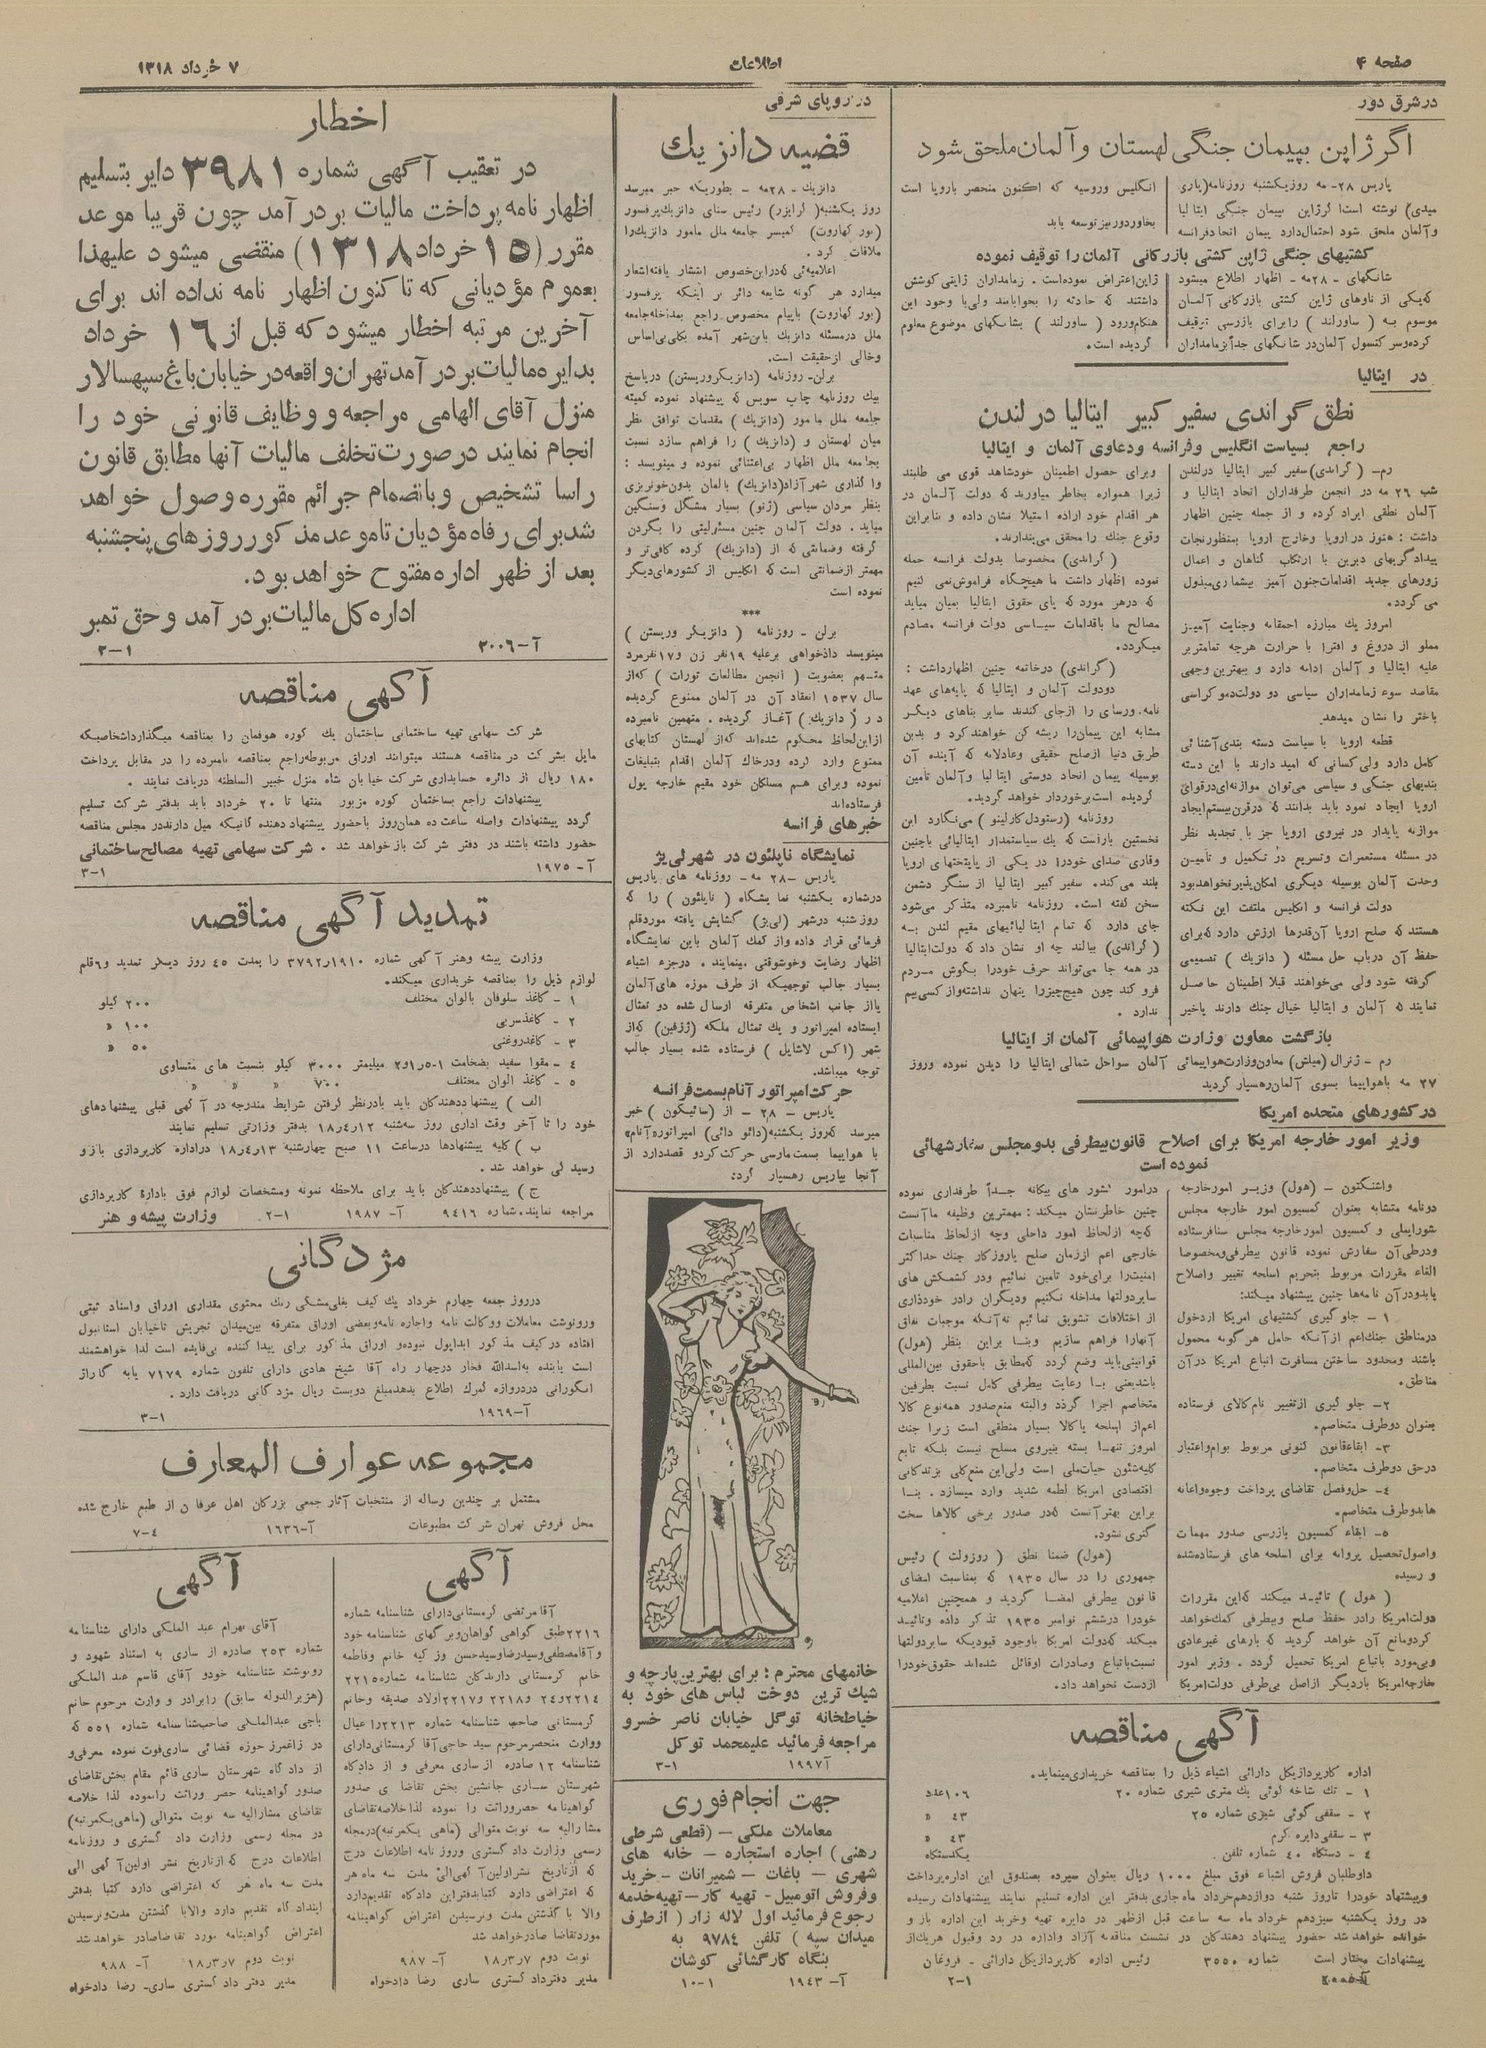 صفحه ۴
اطلاعات
۷ خرداد ۱۳۱۸
در شرق دور
اگر ژاپن بپیمان جنگی لهستان و آلمان ملحق شود
پاریس ۲۸- مه روز یکشنبه روزنامه (پاری
میدی) نوشته است اگر ژاپن بپیمان جنگی ایتالیا
و آلمان ملحق شود احتمال دارد پیمان اتحاد فرانسه
انگلیس و روسیه که اکنون منحصر باروپا است
بخاور دور نیز توسعه یابد
کشتیهای جنگی ژاپن کشتی بازرگانی آلمان را توقیف نموده
شانگهای - ۲۸ مه - اظهار اطلاع میشود
که یکی از ناوهای ژاپن کشتی بازرگانی آلمان
موسوم به ( ساورلند ) را برای بازرسی توقیف
کرده و سر کنسول آلمان در شانگهای جداً بزمامداران
ژاپن اعتراض نموده است. زمامداران ژاپنی کوشش
داشتند که حادثه را بخوابانند ولی با وجود این
هنگام ورود ( ساورلند ) بشانگهای موضوع معلوم
گردیده است.
در ایتالیا
نطق گراندی سفیر کبیر ایتالیا در لندن
راجع بسیاست انگلیس و فرانسه و دعاوی آلمان و ایتالیا
رم- ( گراندی) سفیر کبیر ایتالیا در لندن
شب ۲۶ مه در انجمن طرفداران اتحاد ایتالیا و
آلمان نطقی ایراد کرده و از جمله چنین اظهار
داشت : هنوز در اروپا و خارج اروپا بمنظور نجات
بیدادگریهای دیرین با ارتکاب گناهان و اعمال
زورهای جدید اقدامات جنون آمیز بیشماری مبذول
می گردد.
امروز یك مبارزه احمقانه و جنایت آمیز
مملو از دروغ و افترا با حرارت هرچه تمامتر بر
علیه ایتالیا و آلمان ادامه دارد و بهترین وجهی
مقاصد سوء زمامداران سیاسی دو دولت دموکراسی
باختر را نشان میدهد.
قطعه اروپا با سیاست دسته بندی آشنائی
کامل دارد ولی کسانی که امید دارند با این دسته
بندیهای جنگی و سیاسی می توان موازنه ای در قوای
اروپا ایجاد نمود باید بدانند که در قرن بیستم ایجاد
موازنه پایدار در نیروی اروپا جز با تجدید نظر
در مسئله مستعمرات و تسریع در تکمیل و تأمین
وحدت آلمان بوسیله دیگری امکان پذیر نخواهد بود
دولت فرانسه و انگلیس ملتفت این نکته
هستند که صلح اروپا آن قدرها ارزش دارد که برای
حفظ آن در باب حل مسئله ( دانزیك ) تصمیمی
گرفته شود ولی می خواهند قبلا اطمینان حاصل
نمایند که آلمان و ایتالیا خیال جنك دارند یا خیر
و برای حصول اطمینان خود شاهد قوی می طلبند
زیرا همواره بخاطر میاورند که دولت آلمان در
هر اقدام خود اراده استیلا نشان داده و بنابراین
وقوع جنك را محقق می پندارند.
( گراندی) مخصوصا بدولت فرانسه حمله
نموده اظهار داشت ما هیچگاه فراموش نمی کنیم
که در هر مورد که پای حقوق ایتالیا بمیان میاید
مصالح ما باقدامات سیاسی دولت فرانسه مصادم
میگردد.
(گراندی) در خاتمه چنین اظهار داشت :
دو دولت آلمان و ایتالیا که پایه های عهد
نامه ورسای را از جای کندند سایر بناهای دیگر
مشابه این پیمان را ریشه کن خواهند کرد و بدین
طریق دنیا از صلح حقیقی و عادلانه که آینده آن
بوسیله پیمان اتحاد دوستی ایتالیا و آلمان تأمین
گردیده است برخوردار خواهد گردید.
روزنامه (رستودل کارلینو) می نگارد این
نخستین بار است که یك سیاستمدار ایتالیائی با چنین
وقاری صدای خود را در یکی از پایتختهای اروپا
بلند می کند. سفیر کبیر ایتالیا از سنگر دشمن
سخن گفته است. روزنامه نامبرده متذکر می شود
جای دارد که تمام ایتالیائیهای مقیم لندن به
( گراندی) ببالند چه او نشان داد که دولت ایتالیا
در همه جا می تواند حرف خود را بگوش مردم
فرو کند چون هیچ چیز را پنهان نداشته و از کسی بیم
ندارد .
بازگشت معاون وزارت هواپیمائی آلمان از ایتالیا
رم - ژنرال (میلش) معاون وزارت هواپیمائی آلمان سواحل شمالی ایتالیا را دیدن نموده و روز
۲۷ مه باهواپیما بسوی آلمان رهسپار گردید
در کشورهای متحده امریکا
وزیر امور خارجه امریکا برای اصلاح قانون بیطرفی بدو مجلس سفارشهائی
نموده است
واشنگتون - (هول) وزیر امور خارجه
دو نامه متشابه بعنوان کمسیون امور خارجه مجلس
شورایملی و کمسیون امور خارجه مجلس سنا فرستاده
و در طی آن سفارش نموده قانون بیطرفی و مخصوصا
الغاء مقررات مربوط بتحریم اسلحه تغییر و اصلاح
یابد و در آن نامه ها چنین پیشنهاد میکند:
۱ - جلو گیری کشتیهای امریکا از دخول
در مناطق جنك اعم از آنکه حامل هر گونه محمول
باشند و محدود ساختن مسافرت اتباع امریکا در آن
مناطق.
۲- جلو گیری از تغییر نام کالای فرستاده
بعنوان دو طرف متخاصم.
۳- ابقاء قانون کنونی مربوط بوام و اعتبار
در حق دو طرف متخاصم.
۴- حل و فصل تقاضای پرداخت وجوه و اعانه
ها بدو طرف متخاصم.
۵- ابقاء کمسیون بازرسی صدور مهمات
و اصول تحصیل پروانه برای اسلحه های فرستاده شده
و رسیده
( هول ) تائید میکند که این مقررات
دولت امریکا را در حفظ صلح و بیطرفی کمك خواهد
کرد و مانع آن خواهد گردید که بارهای غیر عادی
و بی مورد باتباع امریکا تحمیل گردد . وزیر امور
خارجه امریکا بار دیگر از اصل بی طرفی دولت امریکا
در امور کشور های بیگانه جداً طرفداری نموده
چنین خاطر نشان میکند : مهمترین وظیفه ما آنست
که چه از لحاظ امور داخلی و چه از لحاظ مناسبات
خارجی اعم از زمان صلح یا روزگار جنك حداکثر
امنیت را برای خود تامین نمائیم و در کشمکش های
سایر دولتها مداخله نکنیم و دیگران را در خودداری
از اختلافات تشویق نمائیم نه آنکه موجبات نفاق
آنها را فراهم سازیم و بنا براین بنظر (هول)
قوانینی باید وضع کردد که مطابق با حقوق بین المللی
باشد یعنی با رعایت بیطرفی کامل نسبت بطرفین
متخاصم اجرا گردد و البته منع صدور همه نوع کالا
اعم از اسلحه یا کالا بسیار منطقی است زیرا جنك
امروز تنها بسته بنیروی مسلح نیست بلکه تابع
کلیه شئون حیات ملی است ولی این منع کلی بزندگانی
اقتصادی امریکا لطمه شدید وارد میسازد . بنا
براین بهتر آنست که در صدور برخی کالاها سخت
گیری نشود.
(هول) ضمنا نطق ( روزولت ) رئیس
جمهوری را در سال ۱۹۳۵ که بمناسبت امضای
قانون بیطرفی امضا گردید و همچنین اعلامیه
خود را در ششم نوامبر ۱۹۳۵ تذکر داده و تائید
میکند که دولت امریکا باوجود قیودیکه سایر دولتها
نسبت باتباع و صادرات او قائل شده اند حقوق خود را
از دست نخواهد داد.
آگهی مناقصه
اداره کارپردازیکل دارائی اشیاء ذیل را بمناقصه خریداری مینماید.
۱ - تك شاخه لوئی یك متری شیری شماره ۲۰ ۱۰۶ عدد
۲ - سقفی گوئی شیری شماره ۲۵ ۴۳ »
۳ - سقفی دایره کرم ۴۳ »
۴ - دستگاه ۴۰ شماره تلفن . یکدستگاه
داوطلبان فروش اشیاء فوق مبلغ ۱۰۰۰ ریال بعنوان سپرده بصندوق این اداره پرداخت
و پیشنهاد خود را تا روز شنبه دوازدهم خرداد ماه جاری بدفتر این اداره تسلیم نمایند پیشنهادات رسیده
در روز یکشنبه سیزدهم خرداد ماه سه ساعت قبل از ظهر در دایره تهیه و خرید این اداره باز و
خوانده خواهد شد حضور پیشنهاد دهندگان در نشست مناقصه آزاد و اداره در رد و قبول هریك از
پیشنهادات مختار است شماره ۳۵۵۰ رئیس اداره کارپردازیکل دارائی - فروغان
۲-۱
در اروپای شرقی
قضیه دانزیك
دانزیك - ۲۸ مه - بطوریکه خبر میرسد
روز یکشنبه ( گرایزر) رئیس سنای دانزیك پرفسور
(بور کهارت) کمیسر جامعه ملل مامور دانزیك را
ملاقات کرد .
اعلامیه ئی که در این خصوص انتشار یافته اشعار
میدارد هر گونه شایعه دائر بر اینکه پرفسور
(بور کهاروت) باپیام مخصوص راجع بمداخله جامعه
ملل در مسئله دانزیك باین شهر آمده بکلی بی اساس
و خالی از حقیقت است.
برلن- روزنامه (دانزیکر وریستن) در پاسخ
بیك روزنامه چاپ سویس که پیشنهاد نموده کمیته
جامعه ملل مامور (دانزیك ) مقدمات توافق نظر
میان لهستان و (دانزیك ) را فراهم سازد نسبت
بجامعه ملل اظهار بی اعتنائی نموده و مینویسد :
واگذاری شهر آزاد (دانزیك) بالمان بدون خونریزی
بنظر مردان سیاسی (ژنو) بسیار مشگل و سنگین
میاید . دولت آلمان چنین مسئولیتی را بگردن
گرفته و ضمانتی که از (دانزیك) کرده کافی تر و
مهمتر از ضمانتی است که انگلیس از کشورهای دیگر
نموده است
***
برلن - روزنامه ( دانزیکر وریستن )
مینویسد دادخواهی برعلیه ۱۹ نفر زن و ۱۷ نفر مرد
متهم بعضویت ( انجمن مطالعات تورات ) که از
سال ۱۵۳۷ انعقاد آن در آلمان ممنوع گردیده
در ( دانزیك ) آغاز گردیده . متهمین نامبرده
از این لحاظ محکوم شده اند که از لهستان کتابهای
ممنوع وارد کرده و در خاك آلمان اقدام بتبلیغات
نموده و برای هم مسلکان خود مقیم خارجه پول
فرستاده اند
خبرهای فرانسه
نمایشگاه ناپلئون در شهر لی یژ
پاریس -۲۸ مه- روزنامه های پاریس
در شماره یکشنبه نمایشگاه ( ناپلئون ) را که
روز شنبه در شهر (لی یژ) گشایش یافته مورد قلم
فرمائی قرار داده و از کمك آلمان باین نمایشگاه
اظهار رضایت و خوشوقتی مینمایند . در جزء اشیاء
بسیار جالب توجهیکه از طرف موزه های آلمان
یا از جانب اشخاص متفرقه ارسال شده دو تمثال
ایستاده امپراتور و یك تمثال ملکه (ژزفین) که از
شهر (اکس لاشاپل ) فرستاده شده بسیار جالب
توجه میباشد.
حرکت امپراتور آنام بسمت فرانسه
پاریس - ۲۸ - از (سائیگون ) خبر
میرسد که روز یکشنبه (دائو دائی) امپراتور «آنام»
با هواپیما بسمت مارسی حرکت کرد و قصد دارد از
آنجا بپاریس رهسپار گردد:
خانمهای محترم ؛ برای بهترین پارچه و
شیك ترین دوخت لباس های خود به
خیاطخانه توگل خیابان ناصر خسرو
مراجعه فرمائید علیمحمد توکل
آ-۱۹۹۷ ۳-۱
جهت انجام فوری
معاملات ملکی - (قطعی شرطی
رهنی) اجاره استجاره - خانه های
شهری - باغات - شمیرانات - خرید
و فروش اتومبیل - تهیه کار - تهیه خدمه
رجوع فرمائید اول لاله زار ( از طرف
میدان سپه ) تلفن ۹۷۸۴ به
بنگاه کارگشائی کوشان
آ- ۱۹۴۳ ۱۰-۱
اخطار
در تعقیب آگهی شماره ۳۹۸۱ دایر بتسلیم
اظهار نامه پرداخت مالیات بر در آمد چون قریبا موعد
مقرر (۱۵ خرداد ۱۳۱۸) منقضی میشود علیهذا
بعموم مؤدیانی که تا کنون اظهار نامه نداده اند برای
آخرین مرتبه اخطار میشود که قبل از ۱۶ خرداد
بدایره مالیات بر در آمد تهران واقعه در خیابان باغ سپهسالار
منزل آقای الهامی مراجعه و وظایف قانونی خود را
انجام نمایند در صورت تخلف مالیات آنها مطابق قانون
راسا تشخیص و بانضمام جرائم مقرره وصول خواهد
شد برای رفاه مؤدیان تا موعد مذکور روزهای پنجشنبه
بعد از ظهر اداره مفتوح خواهد بود.
اداره کل مالیات بر در آمد و حق تمبر
آ-۲۰۰۶ ۲-۱
آگهی مناقصه
شرکت سهامی تهیه ساختمانی ساختمان یك کوره هوفمان را بمناقصه میگذارد اشخاصیکه
مایل بشرکت در مناقصه هستند میتوانند اوراق مربوطه راجع بمناقصه نامبرده را در مقابل پرداخت
۱۸۰ ریال از دائره حسابداری شرکت خیابان شاه منزل خبیر السلطنه دریافت نمایند .
پیشنهادات راجع بساختمان کوره مزبور منتها تا ۲۰ خرداد باید بدفتر شرکت تسلیم
گردد پیشنهادات واصله ساعت ده همان روز باحضور پیشنهاد دهنده گانیکه میل دارند در مجلس مناقصه
حضور داشته باشند در دفتر شرکت باز خواهد شد . شرکت سهامی تهیه مصالح ساختمانی
آ- ۱۹۷۵ ۳-۱
تمدید آگهی مناقصه
وزارت پیشه و هنر آگهی شماره ۳۷۹۲ر۱۹۱۰ را بمدت ۴۵ روز دیگر تمدید و ۶ قلم
لوازم ذیل را بمناقصه خریداری میکند.
۱ - کاغذ سلوفان بالوان مختلف ۲۰۰ کیلو
۲ - کاغذ سربی ۱۰۰ »
۳ - کاغذ روغنی ۵۰ »
۴ - مقوا سفید بضخامت ۱-۱٫۵و۲ میلیمتر ۳۰۰۰ کیلو بنسبت های متساوی
۵ - کاغذ الوان مختلف ۷۰۰ » » »
الف ) پیشنهاد دهندگان باید بادر نظر گرفتن شرایط مندرجه در آگهی قبلی پیشنهادهای
خود را تا آخر وقت اداری روز سه شنبه ۱۲ر۴ر۱۸ بدفتر وزارتی تسلیم نمایند
ب ) کلیه پیشنهادها در ساعت ۱۱ صبح چهارشنبه ۱۳ر۴ر۱۸ در اداره کارپردازی باز و
رسیدگی خواهد شد .
ج ) پیشنهاد دهندکان باید برای ملاحظه نمونه و مشخصات لوازم فوق بادارهٔ کارپردازی
مراجعه نمایند. شماره ۹۴۱۶ آ- ۱۹۸۷ ۲-۱ وزارت پیشه و هنر
مژدگانی
در روز جمعه چهارم خرداد یك کیف بغلی مشگی رنك محتوی مقداری اوراق و اسناد ثبتی
و رونوشت معاملات و وکالت نامه و اجاره نامه و بعضی اوراق متفرقه بین میدان تجریش تا خیابان استانبول
افتاده در کیف مذکور ابدا پول نبوده و اوراق مذکور برای پیدا کننده بی فایده است لذا خواهشمند
است یابنده به اسدالله فخار در چهار راه آقا شیخ هادی دارای تلفون شماره ۷۱۷۹ یا به گاراژ
انگورانی در دروازه گمرك اطلاع بدهد مبلغ دویست ریال مژدگانی دریافت دارد .
آ-۱۹۶۹ ۳-۱
مجموعه عوارف المعارف
مشتمل بر چندین رساله از منتخبات آثار جمعی بزرگان اهل عرفان از طبع خارج شده
محل فروش تهران شرکت مطبوعات آ-۱۶۳۶ ۷-۴
آگهی
آقا مرتضی کرمستانی دارای شناسنامه شماره
۲۲۱۶ طبق گواهی گواهان و برگهای شناسنامه خود
و آقا مصطفی و سید رضا و سید حسن و زکیه خانم و فاطمه
خانم کرمستانی دارندگان شناسنامه شماره ۲۲۱۵
۲۲۱۴و۲۴ و ۲۲۱۸ و ۲۲۱۷ اولاد صدیقه و خانم
کرمستانی صاحب شناسنامه شماره ۲۲۱۳ را عیال
و وراث منحصر مرحوم سید حاجی آقا کرمستانی دارای
شناسنامه ۱۲ صادره از ساری معرفی و از دادگاه
شهرستان ساری جانشین بخش تقاضای صدور
گواهینامه حصر وراثت را نموده لذا خلاصه تقاضای
مشارالیه سه نوبت متوالی (ماهی یکمرتبه) در مجله
رسمی وزارت داد گستری و روزنامه اطلاعات درج
که از تاریخ نشر اولین آگهی الی مدت سه ماه هر
که اعتراضی دارد کتبا بدفتر این دادگاه تقدیم دارد
والا با گذشتن مدت و نرسیدن اعتراض گواهینامه
مورد تقاضا صادر خواهد شد
نوبت دوم ۷ر۳ر۱۸ آ- ۹۸۷
مدیر دفتر داد گستری ساری رضا دادخواه
آگهی
آقای بهرام عبد الملکی دارای شناسنامه
شماره ۲۵۳ صادره از ساری به استناد شهود و
رونوشت شناسنامه خود و آقای قاسم عبد الملکی
(هژبر الدوله سابق) را برادر و وارث مرحوم خانم
باجی عبدالملکی صاحب شناسنامه شماره ۵۵۱ که
در زاغمرز حوزه قضائی ساری فوت نموده معرفی و
از دادگاه شهرستان ساری قائم مقام بخش تقاضای
صدور گواهینامه حصر وراثت را نموده لذا خلاصه
تقاضای مشارالیه سه نوبت متوالی (ماهی یکمرتبه)
در مجله رسمی وزارت داد گستری و روزنامه
اطلاعات درج که از تاریخ نشر اولین آگهی الی
مدت سه ماه هر که اعتراضی دارد کتبا بدفتر
این دادگاه تقدیم دارد والا با گذشتن مدت و نرسیدن
اعتراض گواهینامه مورد تقاضا صادر خواهد شد
نوبت دوم ۷ر۳ر۱۸ آ- ۹۸۸
مدیر دفتر داد گستری ساری- رضا دادخواه